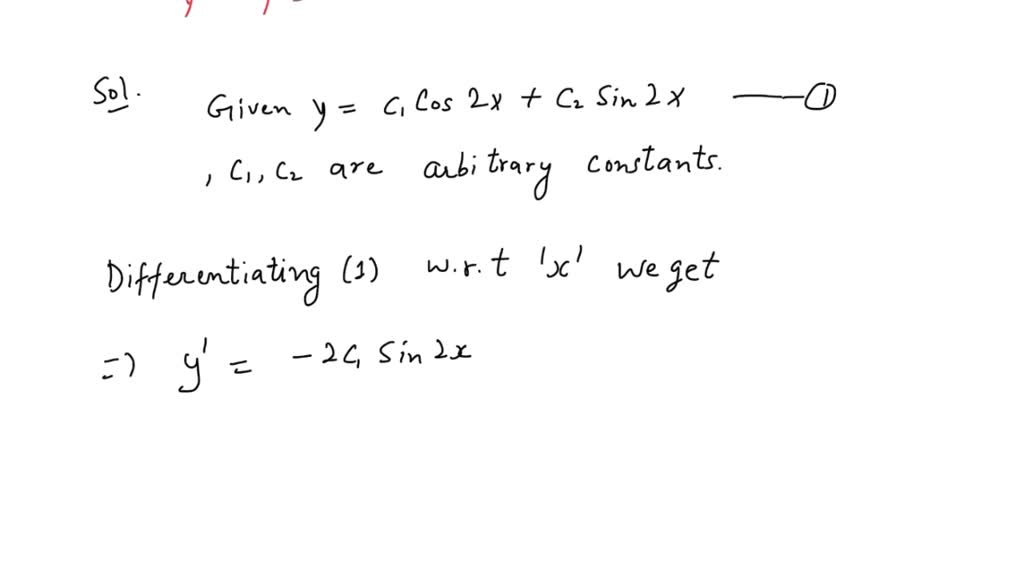 Sol.
Given y = C₁ Cos 2x + C₂ Sin 2x ——①
, C₁, C₂ are arbitrary constants.
Differentiating (1) w.r.t 'x' we get
=) y' = -2C₁ Sin 2x